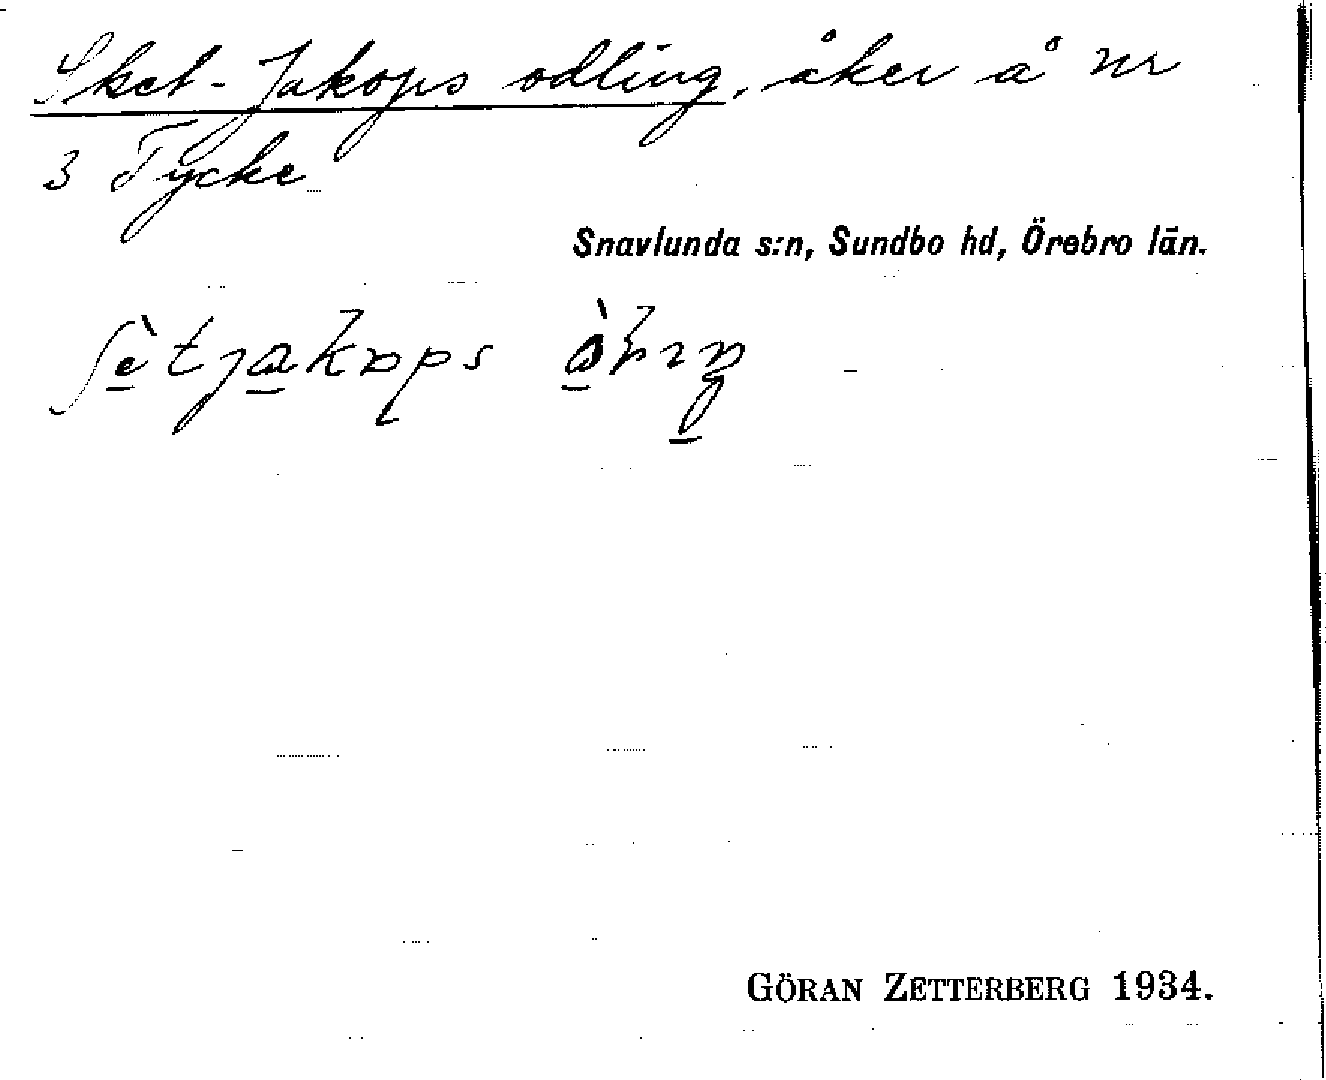 Sket-Jakops odling, åker å nr
3 Tycke
Snavlunda s:n, Sundbo hd, Örebro län.
GÖRAN ZETTERBERG 1934.